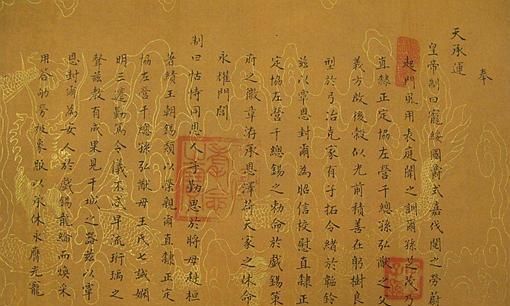 奉
天承運
皇帝制曰寵綏國爵式嘉伐閱之勞蔚
起門風用表庭闈之訓爾孫芝茂乃
直隸正定協左營千總孫弘猷之父
義方啟後穀似光前積善在躬樹良
型於弓冶克家有子拓令緒於韜鈐
茲以覃恩封爾為昭信校尉直隸正
定協左營千總錫之勅命於戲錫策
府之徽章洊承恩澤荷天家之休命
永耀門閭
制曰怙恃同恩人子勤思於將母赳桓
著績王朝錫類以榮親爾直隸正定
協左營千總孫弘猷母王氏七誡嫻
明三遷勤篤令儀不忒早流珩瑀之
聲慈教有成果見干城之器茲以覃
恩封爾為安人於戲錫龍綸而煥采
用答劬勞被象服以承休永膺光寵